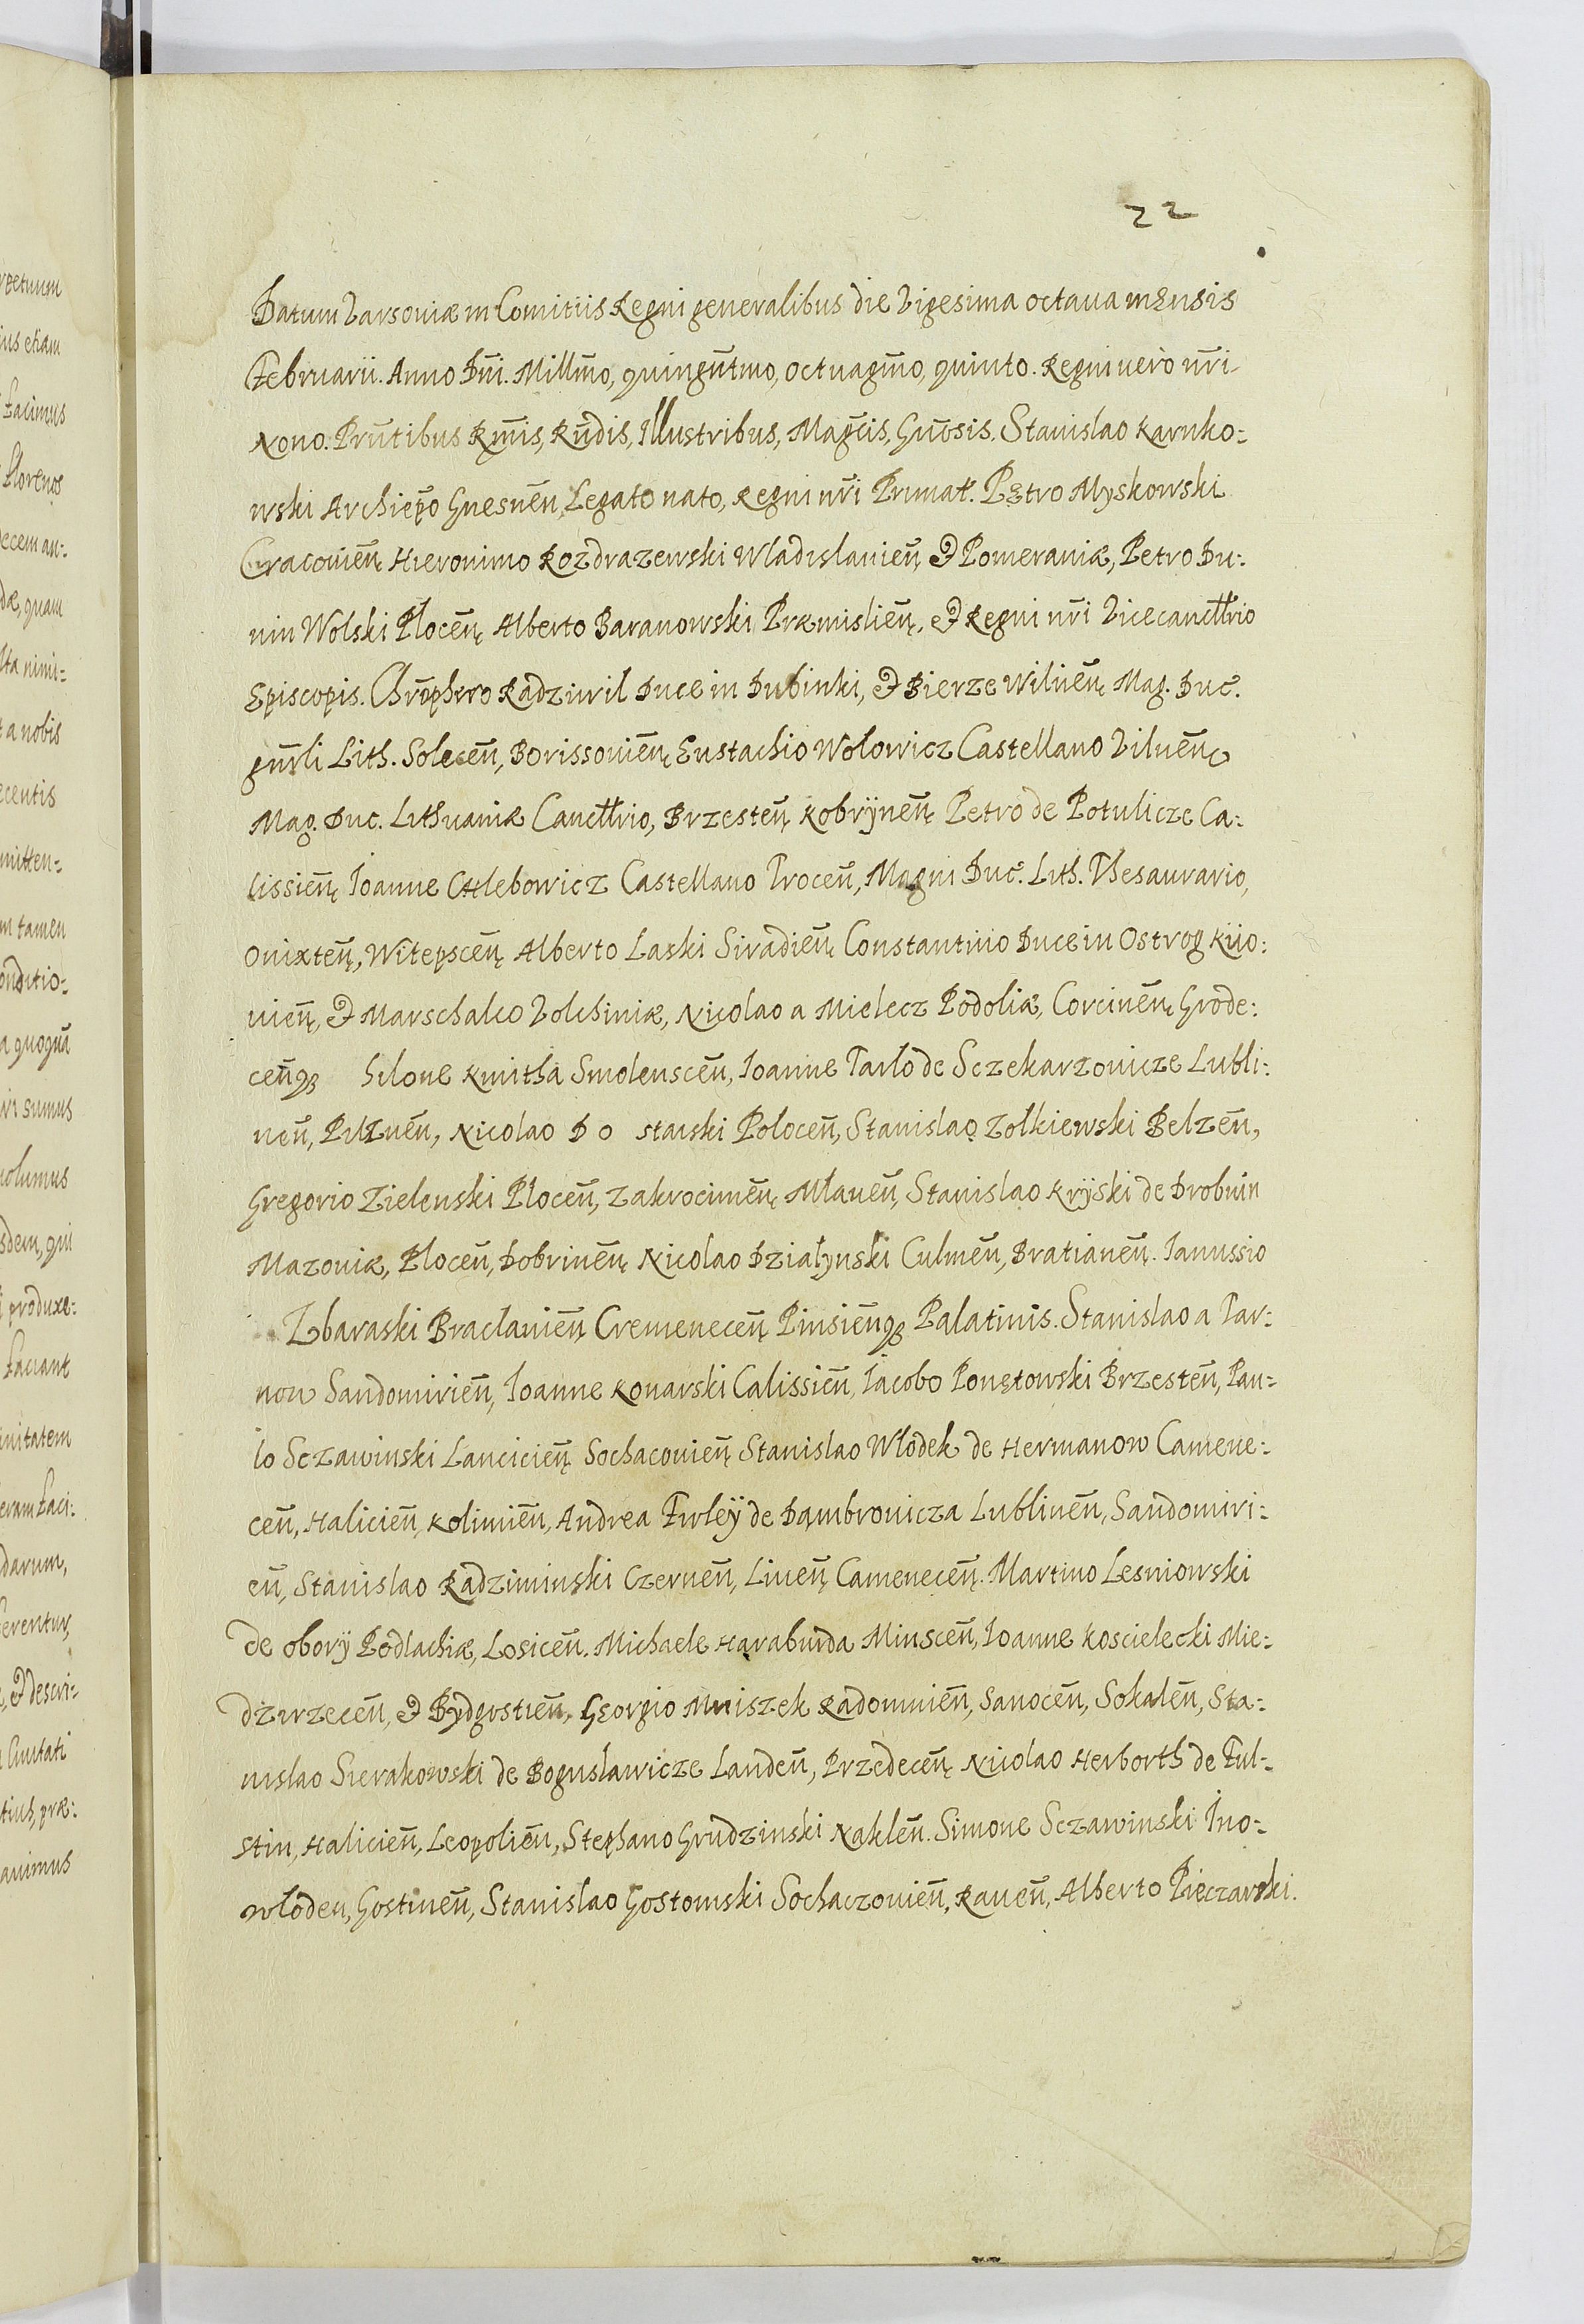 22
Datum Varsoviæ in Comitiis Regni generalibus die Vigesima octaua mensis
Februarii. Anno Dn̄i. Millm̄o, quingn̄tmo, octuagm̄o, quinto. Regni uerò nr̄i
Nono. Prn̄tibus Rm̄is, Rn̄dis, Illustribus, Magc̄is, Gn̄osis. Stanislao Karnko:
wski Archiep̄o Gnesnen̄, Legato nato, Regni nr̄i Primat. Petro Myskowski
Cracouien̄, Hieronimo Rozdrazewski Wladislauien̄, & Pomeraniæ, Petro Du:
nin Wolski Plocen̄, Alberto Baranowski Præmislien̄, & Regni nr̄i Vicecancttrio
Episcopis. Chrōphero Radziwil Duce in Dubinki, & Bierze Wilnen̄, Mag. Duc.
gnr̄li Lith. Solecen̄, Borissouien̄, Eustachio Wołowicz Castellano Vilnen̄,
Mag. Duc. Lithuaniæ Cancttrio, Brzesten̄, Kobrÿnen̄, Petro de Potulicze Ca:
lissien̄, Ioanne Chlebowicz Castellano Trocen̄, Magni Duc. Lith. Thesaurario,
Onixten̄, Witepscen̄, Alberto Laski Siradien̄, Constantino Duce in Ostrog Kiio:
uien̄, & Marschalco Volhiniæ, Nicolao a Mielecz Podoliæ, Corcinen̄, Grode:
cen̄q3 hilone Kmitha Smolenscen̄, Ioanne Tarlo de Sczekarzouicze Lubli:
nen̄, Pilznen̄, Nicolao Do staiski Polocen̄, Stanislao Zołkiewski Belzen̄,
Gregorio Zielenski Plocen̄, Zakrocimen̄, Mlauen̄, Stanislao Krÿski de Drobnin
Mazouiæ, Plocen̄, Dobrinen̄, Nicolao Działynski Culmen̄, Bratianen̄. Ianussio
Zbaraski Braclauien̄, Cremenecen̄, Pinsien̄q3 Palatinis. Stanislao a Tar:
now Sandomirien̄, Ioanne Konarski Calissien̄, Iacobo Ponętowski Brzesten̄, Pau:
lo Sczawinski Lancicien̄, Sochaczouien̄, Stanislao Włodek de Hermanow Camene:
cen̄, Halicien̄, Kolimien̄, Andrea Firleÿ de Dąmbrouicza Lublinen̄, Sandomiri:
en̄, Stanislao Radziminski Czernen̄, Liuen̄, Camenecen̄. Martino Lesniowski
de oborÿ Podlachiæ, Losicen̄. Michaele Haraburda Minscen̄, Ioanne Koscielecki Mie:
dzirzecen̄, & Bydgostien̄, Georgio Mniszek Radomnien̄, Sanocen̄, Sokalen̄, Sta:
nislao Sierakowski de Bogusławicze Landen̄, Przedecen̄, Nicolao Herborth de Ful:
stin, Halicien̄, Leopolien̄, Stephano Grudzinski Naklen̄. Simone Sczawinski Ino:
włoden, Gostinen̄, Stanislao Gostomski Sochaczouien̄, Rauen̄, Alberto Pieczarski.